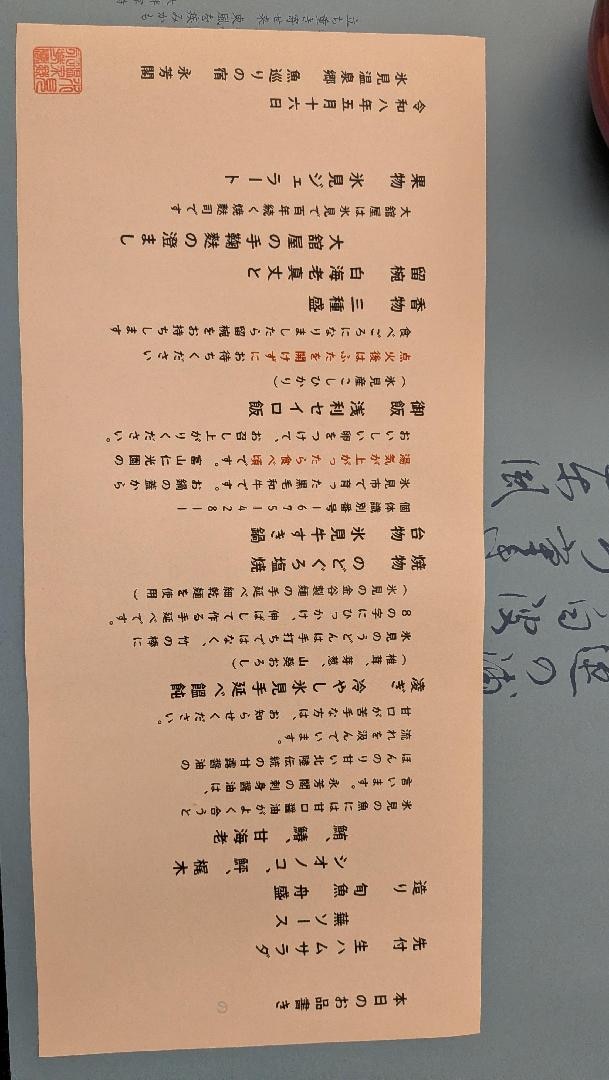 本日のお品書き
先付 生ハムサラダ
蕪ソース
造り 旬魚 舟盛
シオノコ、鮃、梶木
鮪、鰆、甘海老
氷見の魚には甘口醤油がよく合うと
言います。永芳閣の刺身醤油は、
ほんのり甘い北陸伝統の甘露醤油の
流れを汲んでいます。
甘口が苦手な方は、お知らせください。
凌ぎ 冷やし氷見手延べ饂飩
(椎茸、芽葱、山葵おろし)
氷見のうどんは手打ちではなく、竹の棒に
8の字にひっかけ、伸ばして作る手延べです。
(氷見の金谷製麺の手延べ細乾麺を使用)
焼物 のどぐろ塩焼
台物 氷見牛すき鍋
個体識別番号1675142811
氷見市で育った黒毛和牛です。お鍋の蓋から
湯気が上がったら食べ頃です。富山仁光園の
おいしい卵をつけて、お召し上がりください。
御飯 浅利セイロ飯
(氷見産こしひかり)
点火後はふたを開けずにお待ちください
食べごろになりましたら留椀をお持ちします
香物 三種盛
留椀 白海老真丈と
大舘屋の手鞠麩の澄まし
大舘屋は氷見で百年続く焼麩司です
果物 氷見ジェラート
令和八年五月十六日
氷見温泉郷 魚巡りの宿 永芳閣